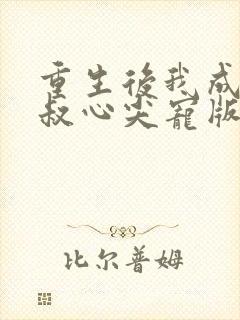 重生後我成
叔心尖寵版
比尔普姆